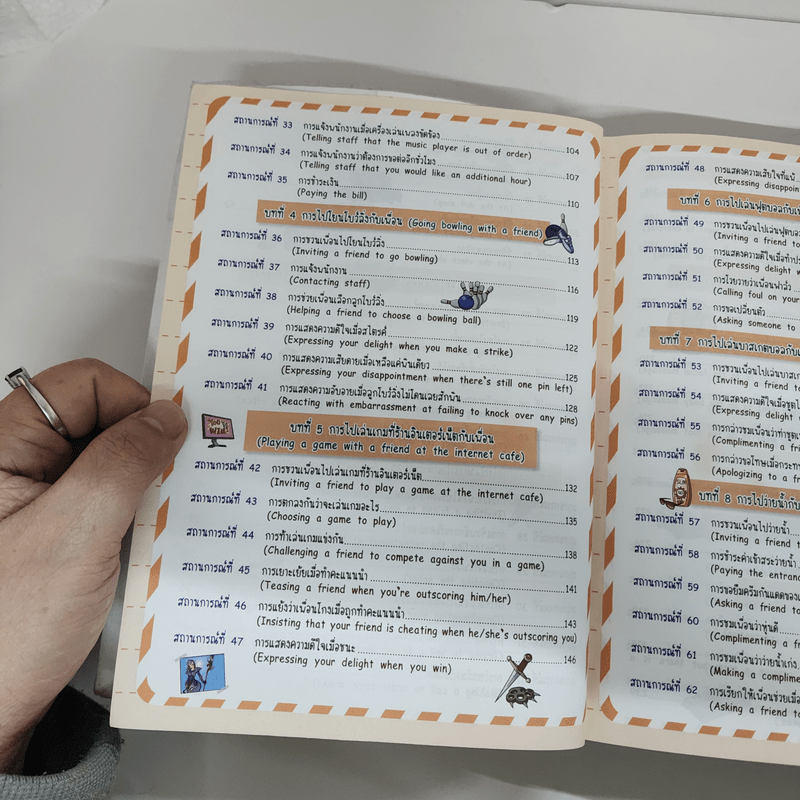 สถานการณ์ที่ 33 การแจ้งพนักงานเมื่อเครื่องเล่นเพลงขัดข้อง 104
(Telling staff that the music player is out of order)
สถานการณ์ที่ 34 การแจ้งพนักงานว่าต้องการขอต่ออีกชั่วโมง 107
(Telling staff that you would like an additional hour)
สถานการณ์ที่ 35 การชำระเงิน 110
(Paying the bill)
บทที่ 4 การไปโยนโบว์ลิ่งกับเพื่อน (Going bowling with a friend)
สถานการณ์ที่ 36 การชวนเพื่อนไปโยนโบว์ลิ่ง 113
(Inviting a friend to go bowling)
สถานการณ์ที่ 37 การแจ้งพนักงาน 116
(Contacting staff)
สถานการณ์ที่ 38 การช่วยเพื่อนเลือกลูกโบว์ลิ่ง 119
(Helping a friend to choose a bowling ball)
สถานการณ์ที่ 39 การแสดงความดีใจเมื่อสไตรค์ 122
(Expressing your delight when you make a strike)
สถานการณ์ที่ 40 การแสดงความเสียดายเมื่อเหลือแค่พินเดียว 125
(Expressing your disappointment when there's still one pin left)
สถานการณ์ที่ 41 การแสดงความอับอายเมื่อลูกโบว์ลิ่งไม่โดนเลยสักพิน 128
(Reacting with embarrassment at failing to knock over any pins)
บทที่ 5 การไปเล่นเกมที่ร้านอินเตอร์เน็ตกับเพื่อน
(Playing a game with a friend at the internet cafe)
สถานการณ์ที่ 42 การชวนเพื่อนไปเล่นเกมที่ร้านอินเตอร์เน็ต 132
(Inviting a friend to play a game at the internet cafe)
สถานการณ์ที่ 43 การตกลงกันว่าจะเล่นเกมอะไร 135
(Choosing a game to play)
สถานการณ์ที่ 44 การท้าเล่นเกมแข่งกัน 138
(Challenging a friend to compete against you in a game)
สถานการณ์ที่ 45 การเยาะเย้ยเมื่อทำคะแนนนำ 141
(Teasing a friend when you're outscoring him/her)
สถานการณ์ที่ 46 การแย้งว่าเพื่อนโกงเมื่อถูกทำคะแนนนำ 143
(Insisting that your friend is cheating when he/she's outscoring you)
สถานการณ์ที่ 47 การแสดงความดีใจเมื่อชนะ 146
(Expressing your delight when you win)
สถานการณ์ที่ 48 การแสดงความเสียใจที่แพ้
(Expressing
บทที่ 6 การไปเล่นฟุตบอลกับ
สถานการณ์ที่ 49 การชวนเพื่อนไปเล่นฟุตบอล
(Inviting a friend to
สถานการณ์ที่ 50 การแสดงความดีใจเมื่อ
(Expressing delight
สถานการณ์ที่ 51 การโวยวายว่าเพื่อนฟาล์ว
(Calling foul on your
สถานการณ์ที่ 52 การขอเปลี่ยนตัว
(Asking someone to
บทที่ 7 การไปเล่นบาสเกตบอลกับ
สถานการณ์ที่ 53 การชวนเพื่อนไปเล่น
(Inviting a friend
สถานการณ์ที่ 54 การแสดงความดีใจเมื่อ
(Expressing delight
สถานการณ์ที่ 55 การกล่าวชมเพื่อนว่า
(Complimenting a
สถานการณ์ที่ 56 การกล่าวขอโทษเมื่อ
(Apologizing to a
บทที่ 8 การไปว่ายน้ำ
สถานการณ์ที่ 57 การชวนเพื่อนไปว่ายน้ำ
(Inviting a friend
สถานการณ์ที่ 58 การชำระค่าเข้าสระว่ายน้ำ
(Paying the
สถานการณ์ที่ 59 การขอยืมครีมกันแดดของ
(Asking a friend
สถานการณ์ที่ 60 การชมเพื่อนว่าหุ่นดี
(Complimenting a
สถานการณ์ที่ 61 การชมเพื่อนว่าว่ายน้ำเก่ง
(Making a
สถานการณ์ที่ 62 การเรียกให้เพื่อนช่วยเมื่อ
(Asking a friend